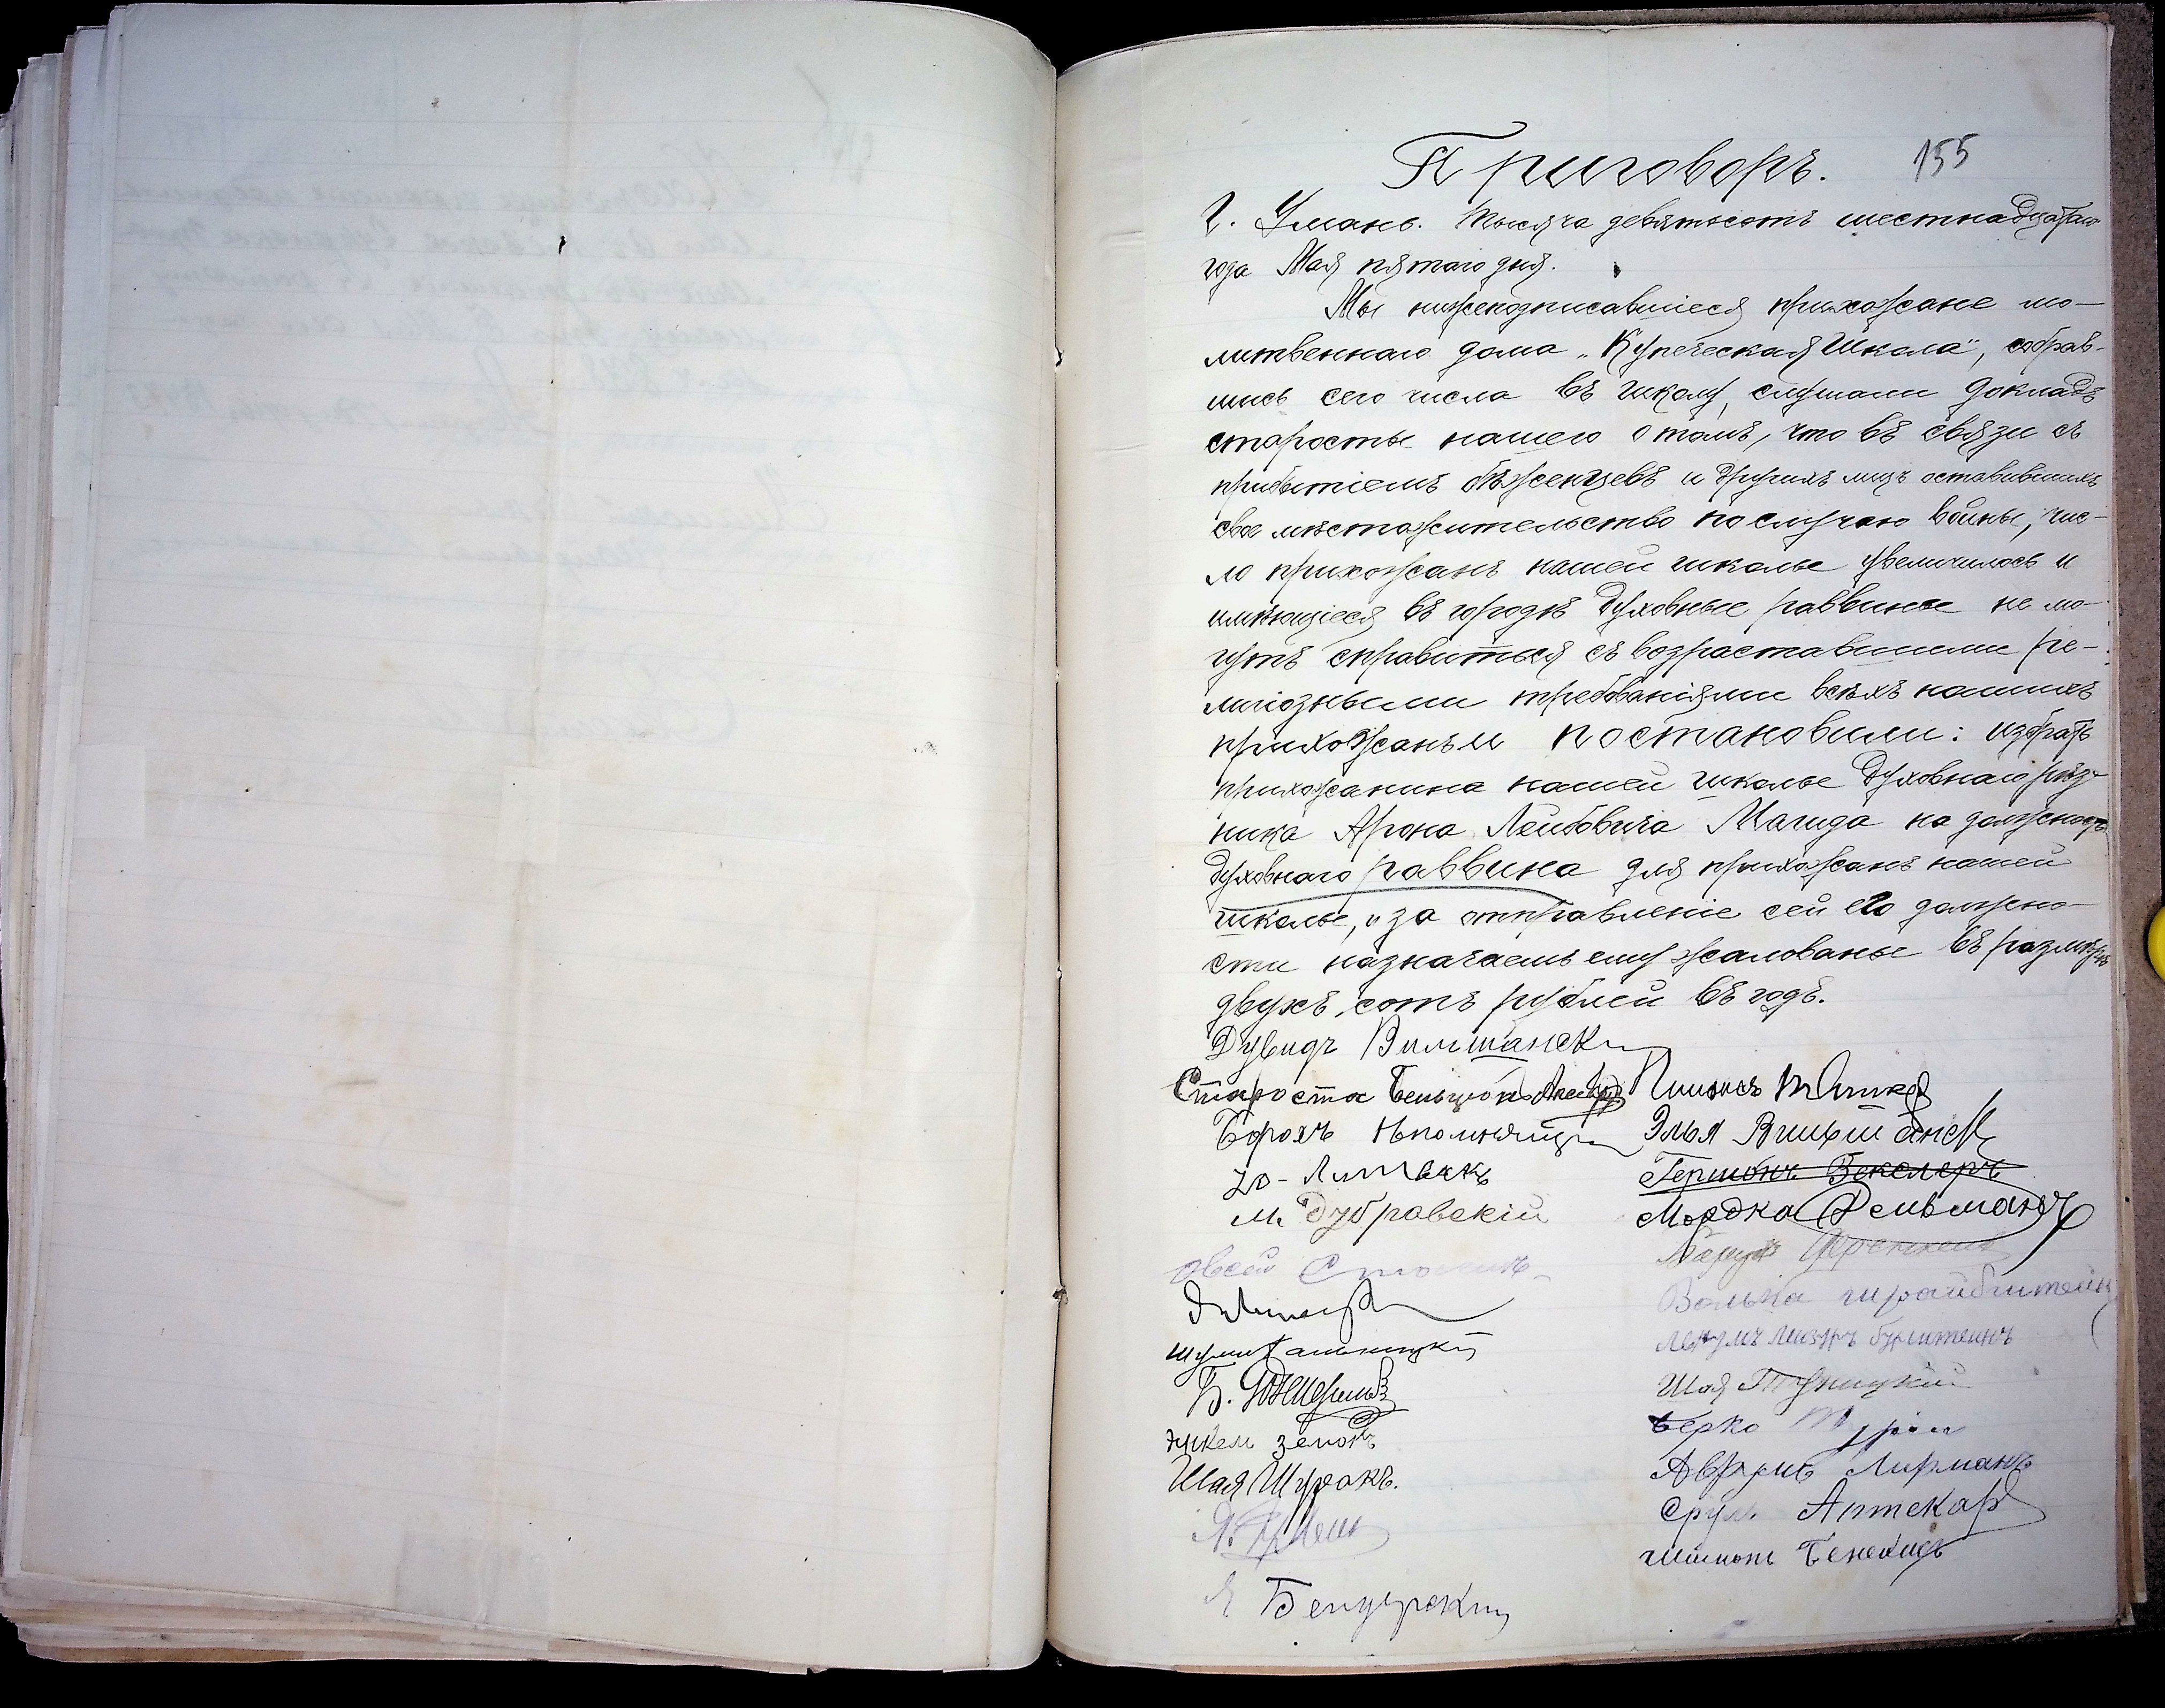 Приговоръ.
155
Г. Умань. Тысяча девятьсотъ шестнадцатаго
года Мая пятаго дня.
Мы нижеподписавшіеся прихожане мо-
литвеннаго дома „Купеческая Школа", собрав-
шись сего числа въ школу, слушали докладъ
старосты нашего о томъ, что въ связи съ
прибытіемъ бѣженцевъ и другихъ лицъ оставившихъ
свое мѣстожительство по случаю войны, чис-
ло прихожанъ нашей школы увеличилось и
имѣющіеся въ городѣ духовные раввины не мо-
гутъ справиться съ возраставшими ре-
лигіозными требованіями всѣхъ нашихъ
прихожанъ и постановили: избрать
прихожанина нашей школы духовнаго рѣз-
ника Арона Лейбовича Магида на должность
духовнаго раввина для прихожанъ нашей
школы, и за отправленіе сей его должно-
сти назначаемъ ему жалованье въ размѣрѣ
двухъ сотъ рублей въ годъ.
Дувидъ Вильшанск
Староста Бенціонъ
Борохъ
Литвакъ
Эля Вильшанск
М. Дубравскій
Гершонъ Векслеръ
Мордко Фельманъ
Овсей
Волько Шрайбштейн
Шая
Б.
Берко
Шая Шуракъ.
Аврумъ Лирманъ
Сруль Аптекар
Я Бендерский
Шимонъ